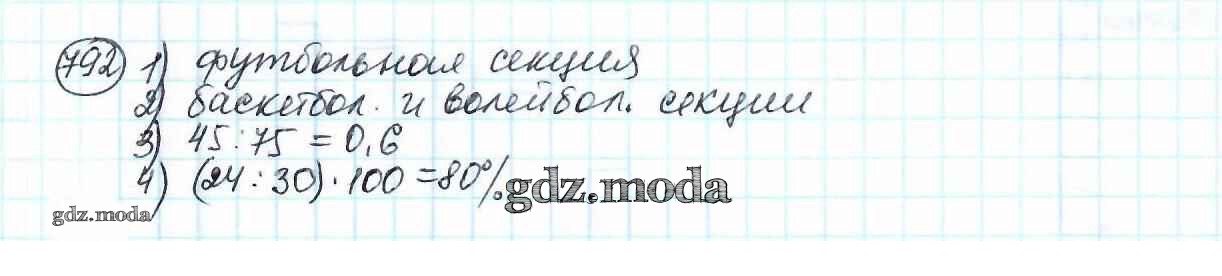 792 1) футбольная секция
2) баскетбол. и волейбол. секции
3) 45:75 = 0,6
4) (24:30)·100=80%
gdz.moda
gdz.moda